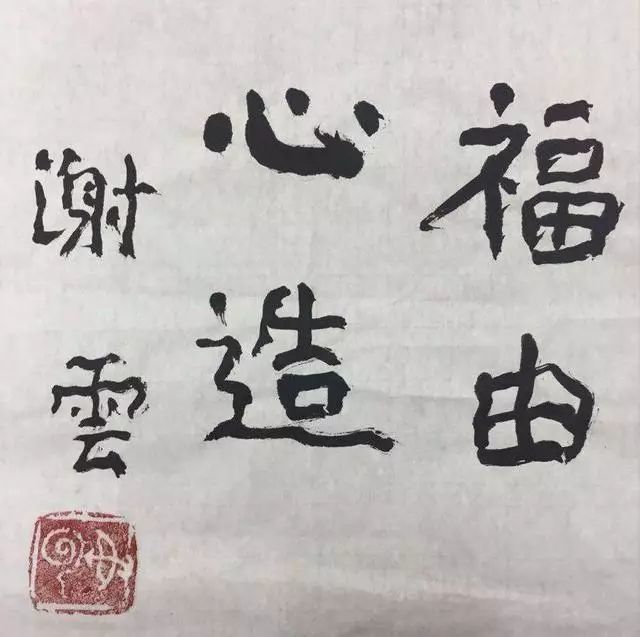 福由
心造
谢雲